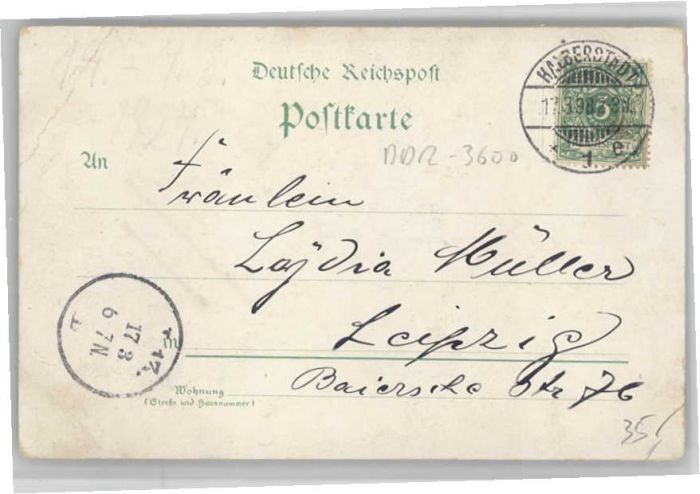 Deutsche Reichspost
HALBERSTADT
3
1 e
Postkarte
DDR-3600
An
Fräulein
Laÿdia Müller
Leipzig
17.
17 3
6 7 N
in
Wohnung
(Straße und Hausnummer)
Baiersche Str 76
35,